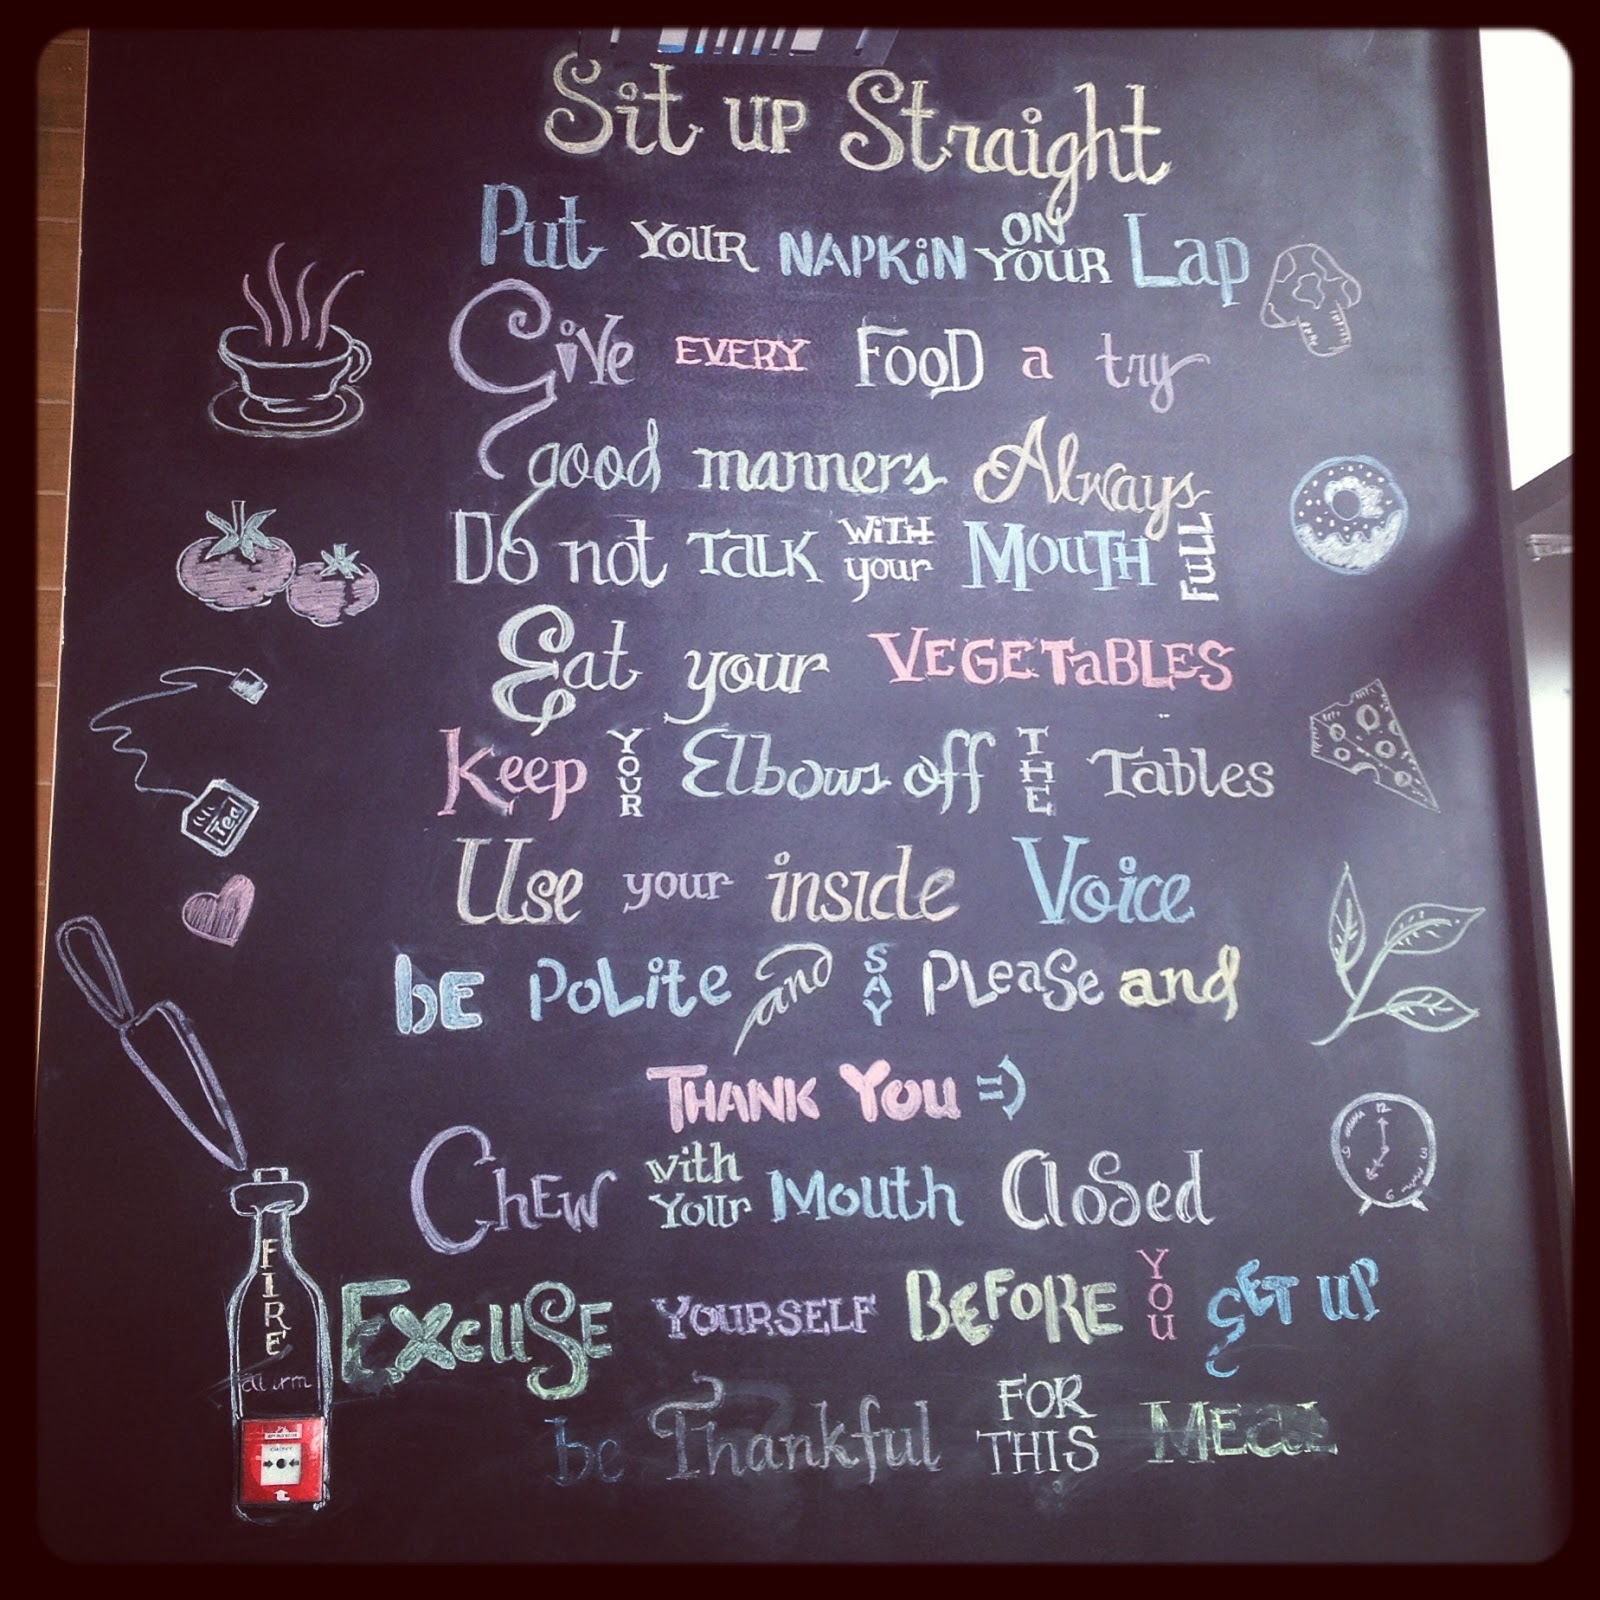 Sit up Straight
Put YOUR NAPKiN ON YOUR Lap
Give EVERY FOOD a try
good manners Always
Do not TaLK WiTH your MOUTH FuLL
Eat your VEGETaBLES
Keep YOUR Elbows off THE Tables
Use your inside Voice
bE PoLite and SAY PLeaSe and
THANK YOU =)
CHEW with YOUR Mouth Closed
EXCUSE YOURSELF BEFORE YOU GET UP
be Thankful FOR THIS MEaL
Tea
12
3
6
9
FIRE
alarm